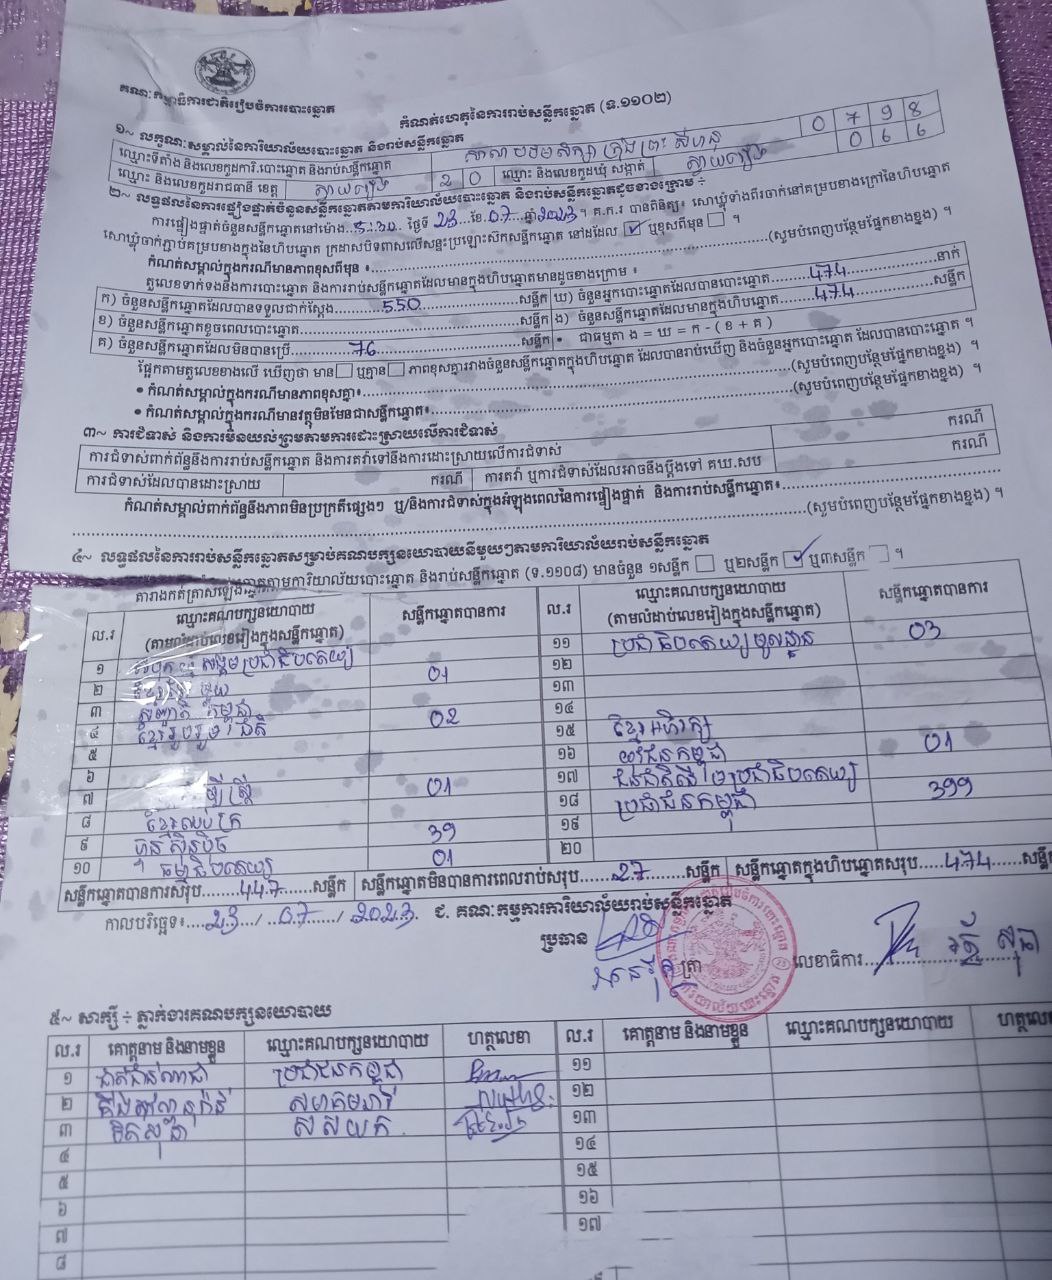 គណៈកម្មាធិការជាតិរៀបចំការបោះឆ្នោត
កំណត់ហេតុនៃការរាប់សន្លឹកឆ្នោត (ទ.១១០២)
១~ លក្ខណៈសម្គាល់នៃការិយាល័យបោះឆ្នោត និងរាប់សន្លឹកឆ្នោត
ឈ្មោះទីតាំង និងលេខកូដការិ.បោះឆ្នោត និងរាប់សន្លឹកឆ្នោត 0 7 9 8
ឈ្មោះ និងលេខកូដរាជធានី ខេត្ត ស្វាយរៀង 2 0 ឈ្មោះ និងលេខកូដឃុំ សង្កាត់ ស្វាយរៀង 0 6 6
២~ លទ្ធផលនៃការផ្ទៀងផ្ទាត់ចំនួនសន្លឹកឆ្នោតតាមការិយាល័យបោះឆ្នោត និងរាប់សន្លឹកឆ្នោតដូចខាងក្រោម ÷
ការផ្ទៀងផ្ទាត់ចំនួនសន្លឹកឆ្នោតនៅម៉ោង...5:30...ថ្ងៃទី 23...ខែ.07...ឆ្នាំ2023។ គ.ក.រ បានពិនិត្យ៖ សោឃ្លុំទាំងពីរចាក់នៅគម្របខាងក្រៅនៃហិបឆ្នោត
សោឃ្លុំចាក់ភ្ជាប់គម្របខាងក្នុងនៃហិបឆ្នោត ក្រដាសបិទពាសលើសន្ទះប្រឡោះស៊ីកសន្លឹកឆ្នោត នៅដដែល ✓ ឬខុសពីមុន ។
កំណត់សម្គាល់ក្នុងករណីមានភាពខុសពីមុន ៖ (សូមបំពេញបន្ថែមផ្នែកខាងខ្នង) ។
តួលេខទាក់ទងនឹងការបោះឆ្នោត និងការរាប់សន្លឹកឆ្នោតដែលមានក្នុងហិបឆ្នោតមានដូចខាងក្រោម ៖
ក) ចំនួនសន្លឹកឆ្នោតដែលបានទទួលជាក់ស្តែង...550...សន្លឹក ឃ) ចំនួនអ្នកបោះឆ្នោតដែលបានបោះឆ្នោត...474...នាក់
ខ) ចំនួនសន្លឹកឆ្នោតខូចពេលបោះឆ្នោត...សន្លឹក ង) ចំនួនសន្លឹកឆ្នោតដែលមានក្នុងហិបឆ្នោត...474...សន្លឹក
គ) ចំនួនសន្លឹកឆ្នោតដែលមិនបានប្រើ...76...សន្លឹក • ជាធម្មតា ង = ឃ = ក - ( ខ + គ )
ផ្អែកតាមតួលេខខាងលើ ឃើញថា មាន ឬគ្មាន ភាពខុសគ្នារវាងចំនួនសន្លឹកឆ្នោតក្នុងហិបឆ្នោត ដែលបានរាប់ឃើញ និងចំនួនអ្នកបោះឆ្នោត ដែលបានបោះឆ្នោត ។
• កំណត់សម្គាល់ក្នុងករណីមានភាពខុសគ្នា៖ (សូមបំពេញបន្ថែមផ្នែកខាងខ្នង) ។
• កំណត់សម្គាល់ក្នុងករណីមានវត្ថុមិនមែនជាសន្លឹកឆ្នោត៖ (សូមបំពេញបន្ថែមផ្នែកខាងខ្នង) ។
៣~ ការជំទាស់ និងការមិនយល់ព្រមតាមការដោះស្រាយលើការជំទាស់
ការជំទាស់ពាក់ព័ន្ធនឹងការរាប់សន្លឹកឆ្នោត និងការតវ៉ាទៅនឹងការដោះស្រាយលើការជំទាស់ ករណី
ការជំទាស់ដែលបានដោះស្រាយ ករណី ការតវ៉ា ឬការជំទាស់ដែលអាចនឹងប្តឹងទៅ គឃ.សប ករណី
កំណត់សម្គាល់ពាក់ព័ន្ធនឹងភាពមិនប្រក្រតីផ្សេងៗ ឬ/និងការជំទាស់ក្នុងអំឡុងពេលនៃការផ្ទៀងផ្ទាត់ និងការរាប់សន្លឹកឆ្នោត៖
(សូមបំពេញបន្ថែមផ្នែកខាងខ្នង) ។
៤~ លទ្ធផលនៃការរាប់សន្លឹកឆ្នោតសម្រាប់គណបក្សនយោបាយនីមួយៗតាមការិយាល័យរាប់សន្លឹកឆ្នោត
តារាងកត់ត្រាសន្លឹកឆ្នោតតាមការិយាល័យបោះឆ្នោត និងរាប់សន្លឹកឆ្នោត (ទ.១១០៨) មានចំនួន ១សន្លឹក ឬ២សន្លឹក ✓ ឬ៣សន្លឹក ។
ល.រ ឈ្មោះគណបក្សនយោបាយ (តាមលំដាប់លេខរៀងក្នុងសន្លឹកឆ្នោត) សន្លឹកឆ្នោតបានការ ល.រ ឈ្មោះគណបក្សនយោបាយ (តាមលំដាប់លេខរៀងក្នុងសន្លឹកឆ្នោត) សន្លឹកឆ្នោតបានការ
១ សង្គមប្រជាធិបតេយ្យ 01 ១១ ប្រជាធិបតេយ្យមូលដ្ឋាន 03
២ ១២
៣ កម្ពុជា 02 ១៣
៤ ខ្មែររួបរួមជាតិ ១៤
៥ ១៥ ខ្មែរអភិរក្ស
៦ ១៦ យុវជនកម្ពុជា 01
៧ ឃ្មុំ 01 ១៧ ជនជាតិដើមប្រជាធិបតេយ្យ
៨ ខ្មែរឈប់ក្រ ១៨ ប្រជាជនកម្ពុជា 399
៩ ហ្វ៊ុនស៊ិនប៉ិច 39 ១៩
១០ ធម្មាធិបតេយ្យ 01 ២០
សន្លឹកឆ្នោតបានការសរុប...447...សន្លឹក សន្លឹកឆ្នោតមិនបានការពេលរាប់សរុប...27...សន្លឹក សន្លឹកឆ្នោតក្នុងហិបឆ្នោតសរុប...474...សន្លឹក
កាលបរិច្ឆេទ៖...23.../...07.../2023. ជ. គណៈកម្មការការិយាល័យរាប់សន្លឹកឆ្នោត
ប្រធាន ត្រា លេខាធិការ
៥~ សាក្សី ÷ ភ្នាក់ងារគណបក្សនយោបាយ
ល.រ គោត្តនាម និងនាមខ្លួន ឈ្មោះគណបក្សនយោបាយ ហត្ថលេខា ល.រ គោត្តនាម និងនាមខ្លួន ឈ្មោះគណបក្សនយោបាយ ហត្ថលេខា
១ ប្រជាជនកម្ពុជា ១១
២ សមាគមនារី ១២
៣ ស ស យ ក ១៣
៤ ១៤
៥ ១៥
៦ ១៦
៧ ១៧
៨